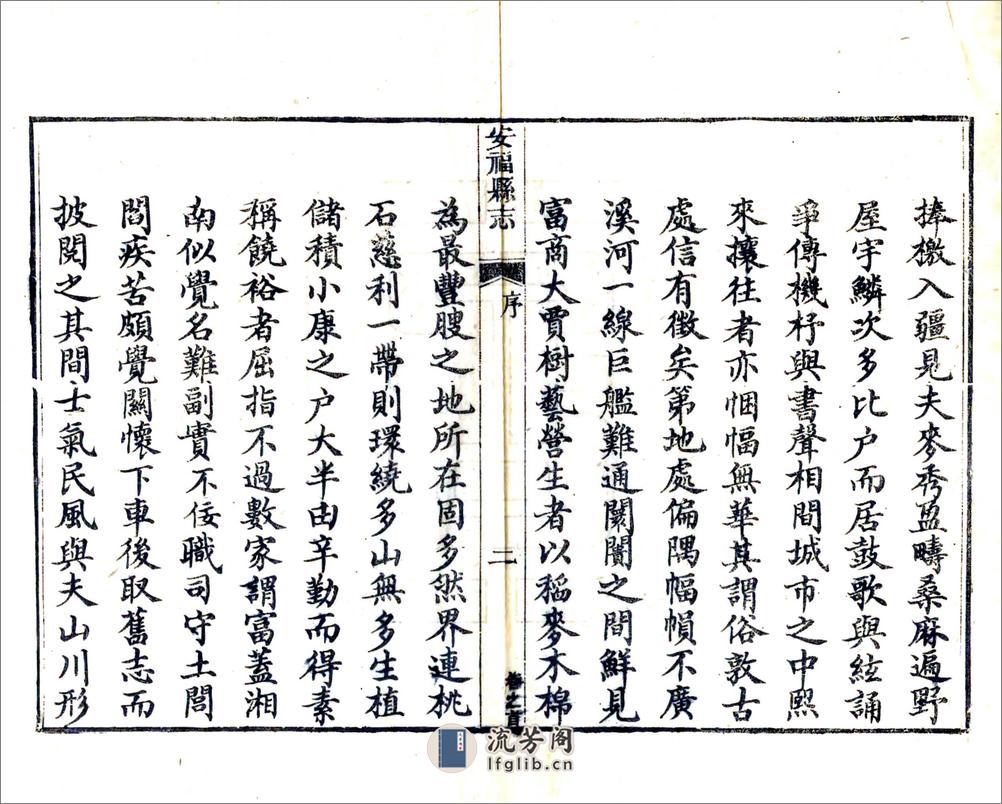 捧檄入疆見夫麥秀盈疇桑麻遍野
屋宇鱗次多比户而居鼓歌與絃誦
爭傳機杼與書聲相間城市之中熙
來攘往者亦悃愊無華其謂俗敦古
處信有徵矣第地處偏隅幅幀不廣
溪河一線巨艦難通闤闠之間鮮見
富商大賈樹藝營生者以稻麥木棉
安福縣志
序
二
卷之首
為最豐腴之地所在固多然界連桃
石慈利一帶則環繞多山無多生植
儲積小康之户大半由辛勤而得素
稱饒裕者屈指不過數家謂富蓋湘
南似覺名難副實不佞職司守土閭
閻疾苦頗覺關懷下車後取舊志而
披閱之其間士氣民風與夫山川形
流芳阁
lfglib.cn